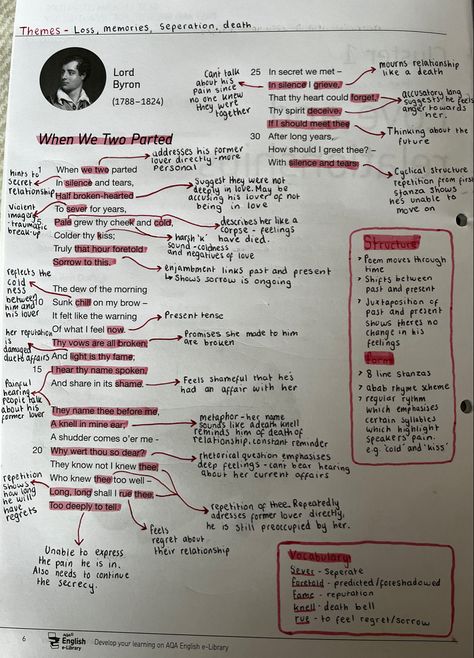 Themes - Loss, memories, seperation, death
Lord
Byron
(1788–1824)
When We Two Parted
1 When we two parted
In silence and tears,
Half broken-hearted
To sever for years,
5 Pale grew thy cheek and cold,
Colder thy kiss;
Truly that hour foretold
Sorrow to this.
The dew of the morning
10 Sunk chill on my brow –
It felt like the warning
Of what I feel now.
Thy vows are all broken,
And light is thy fame;
15 I hear thy name spoken,
And share in its shame.
They name thee before me,
A knell in mine ear;
A shudder comes o'er me –
20 Why wert thou so dear?
They know not I knew thee,
Who knew thee too well –
Long, long shall I rue thee,
Too deeply to tell.
25 In secret we met –
In silence I grieve,
That thy heart could forget,
Thy spirit deceive.
If I should meet thee
30 After long years,
How should I greet thee? –
With silence and tears.
Cant talk
about his
pain since
no one knew
they were
together
mourns relationship
like a death
accusatory long
suggests the feels
anger towards
her.
Thinking about the
future
Cyclical structure
repetition from first
stanza shows
hes unable to
move on
addresses his former
lover directly - more
personal
hints to
Secret
relationship
Suggest they were not
deeply in love. May be
accusing his lover of not
being in love
Violent
imagery
traumatic
break-up
describes her like a
corpse - feelings
have died.
harsh 'k'
sound - coldness
and negatives of love
enjambment links past and present
↳ Shows sorrow is ongoing
reflects the
cold
ness
between
him and
his lover
Present tense
Promises she made to him
are broken
her reputation
is
damaged
due to affairs
Feels shameful that he's
had an affair with her
Painful
hearing
people talk
about his
former
lover
metaphor - her name
sounds like a death knell
reminds him of death of
relationship. constant reminder
rhetorical question emphasises
deep feelings - cant bear hearing
about her current affairs
repetition
shows
how long
he will
have
regrets
repetition of thee. Repeatedly
adresses former lover directly,
he is still preoccupied by her.
feels
regret about
their relationship
Unable to express
the pain he is in.
Also needs to continue
the secrecy.
Structure
> Poem moves through
time
> Shifts between
past and present
> Juxtaposition of
past and present
shows theres no
change in his
feelings
Form
> 8 line stanzas
> abab rhyme scheme
> regular rythm
which emphasises
certain syllables
which highlight
speakers' pain.
e.g 'cold' and 'kiss'
Vocabulary
Sever - Seperate
foretold - predicted/foreshadowed
fame - reputation
knell - death bell
rue - to feel regret/sorrow
6
AQA
English
e-Library
Develop your learning on AQA English e-Library